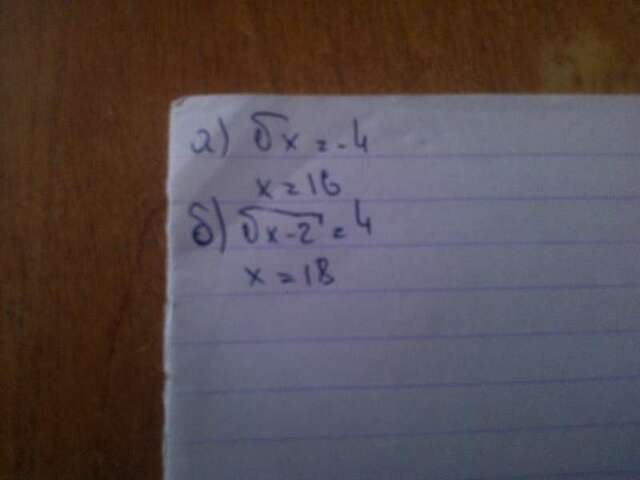 а) √x = -4
x = 16
б) √x-2 = 4
x = 18